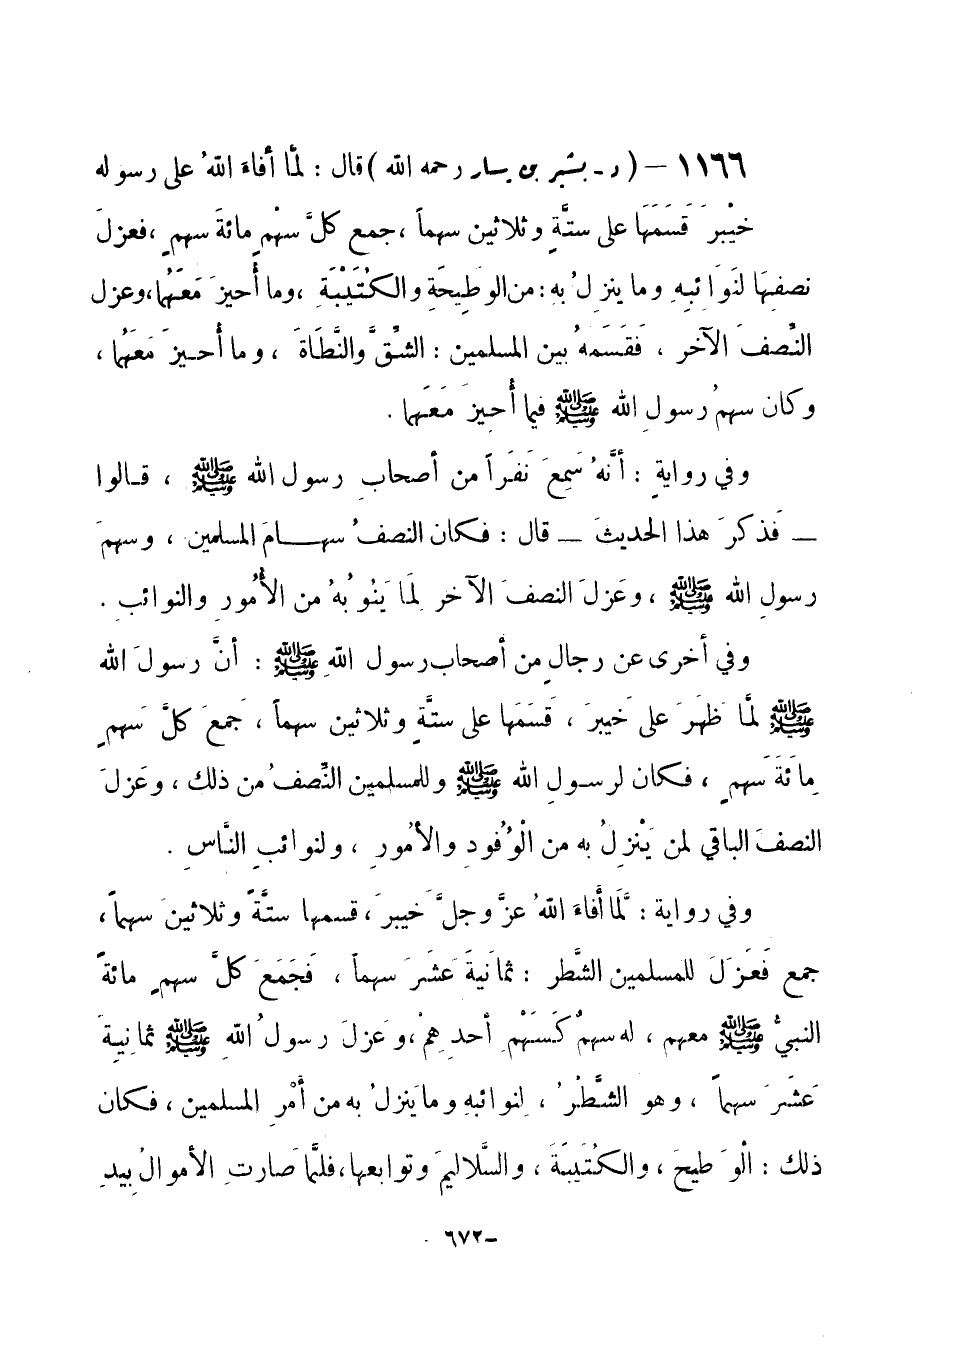 ١١٦٦ – ( د - بشير بن يسار رحمه الله ) قال : لمَّا أفاءَ اللهُ على رسوله
خيْبرَ قَسَمَهَا على ستَّةٍ وثلاثين سهماً ، جمع كلَّ سهْمٍ مائةَ سهمٍ ، فعزلَ
نصفهَا لنَوَائبِهِ وما ينزلُ به : من الوَطِيحَةِ والكُتَيْبَةِ ، وما أُحيزَ مَعَهُما ، وعزل
النِّصفَ الآخر ، فَقَسَمَهُ بين المسلمين : الشِّقَّ والنَّطَاةَ ، وما أُحيزَ مَعَهُما ،
وكان سهمُ رسولِ الله ﷺ فيما أُحِيزَ مَعَهما .
وفي روايةٍ : أنَّهُ سَمِعَ نَفَراً من أصحابِ رسول الله ﷺ ، قالوا
– فَذكرَ هذا الحديثَ – قال : فكان النصفُ سهامَ المسلمين ، وسهمَ
رسولِ الله ﷺ ، وعَزلَ النصفَ الآخر لِمَا يَنُوبُهُ من الأُمُورِ والنوائبِ .
وفي أخرى عن رجالٍ من أصحاب رسول اللهِ ﷺ : أنَّ رسولَ الله
ﷺ لمَّا ظهَرَ على خَيبرَ ، قَسَمَها على ستَّةٍ وثلاثين سهماً ، جَمعَ كلَّ سَهمٍ
مِائَةَ سَهمٍ ، فكان لرسولِ الله ﷺ وللمسلمين النِّصفُ من ذلك ، وعَزلَ
النصفَ الباقي لمن يَنْزِلُ به من الْوُفُودِ والأُمُورِ ، ولنوائبِ النَّاسِ .
وفي رواية : لَمَّا أَفاءَ اللهُ عزَّ وجلَّ خيبرَ ، قسمها ستَّةً وثلاثينَ سهماً ،
جمع فَعَزَلَ للمسلمين الشَّطر : ثمانيةَ عَشَرَ سهماً ، فَجَمَعَ كلَّ سهمٍ مائةً
النبيُّ ﷺ معهم ، له سهمٌ كَسَهْمِ أحدِهِمْ ، وعَزلَ رسولُ اللهِ ﷺ ثمانِيةَ
عَشَرَ سهماً ، وهو الشَّطْرُ ، لِنوائبهِ وما يَنزلُ به من أمْرِ المسلمين ، فكان
ذلك : الْوَطيحَ ، والكُتَيبَةَ ، والسَّلاليمَ وتوابعها ، فلمَّا صَارتِ الأموالُ بِيدِ
-٦٧٢-